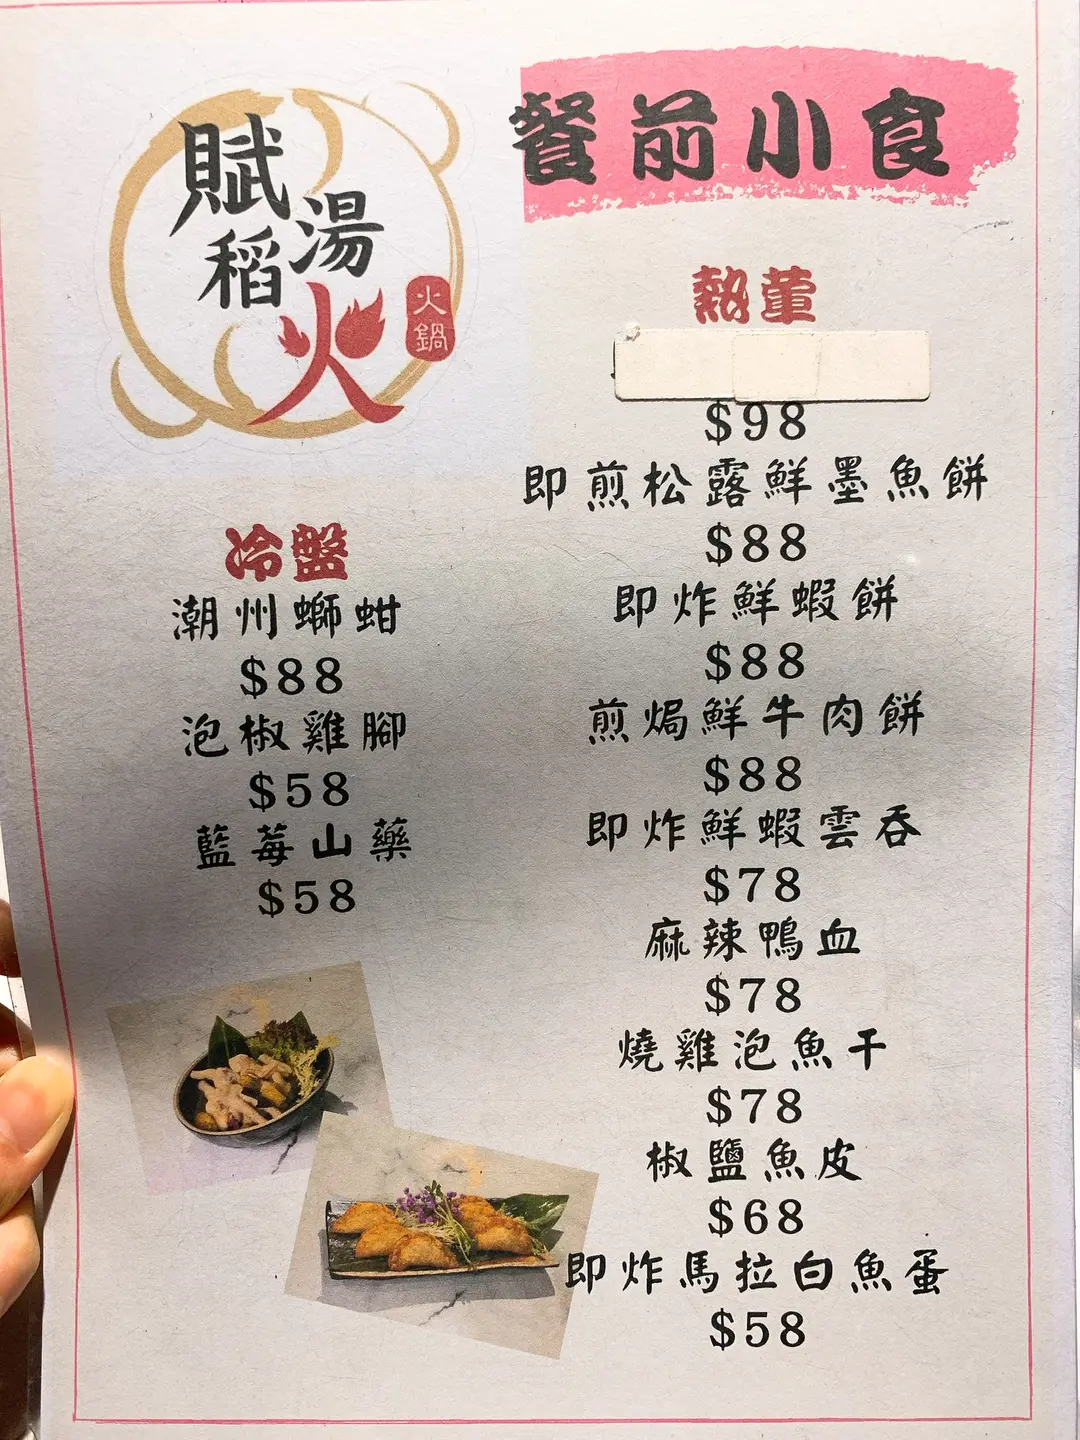 賦湯
稻火
火鍋
餐前小食
冷盤
潮州螄蚶
$88
泡椒雞腳
$58
藍莓山藥
$58
熱葷
$98
即煎松露鮮墨魚餅
$88
即炸鮮蝦餅
$88
煎焗鮮牛肉餅
$88
即炸鮮蝦雲吞
$78
麻辣鴨血
$78
燒雞泡魚干
$78
椒鹽魚皮
$68
即炸馬拉白魚蛋
$58